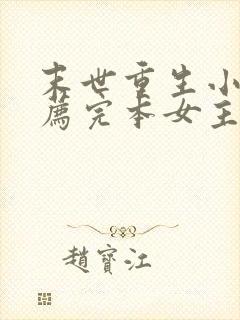 末世重生小
薦完本女主
趙寶江